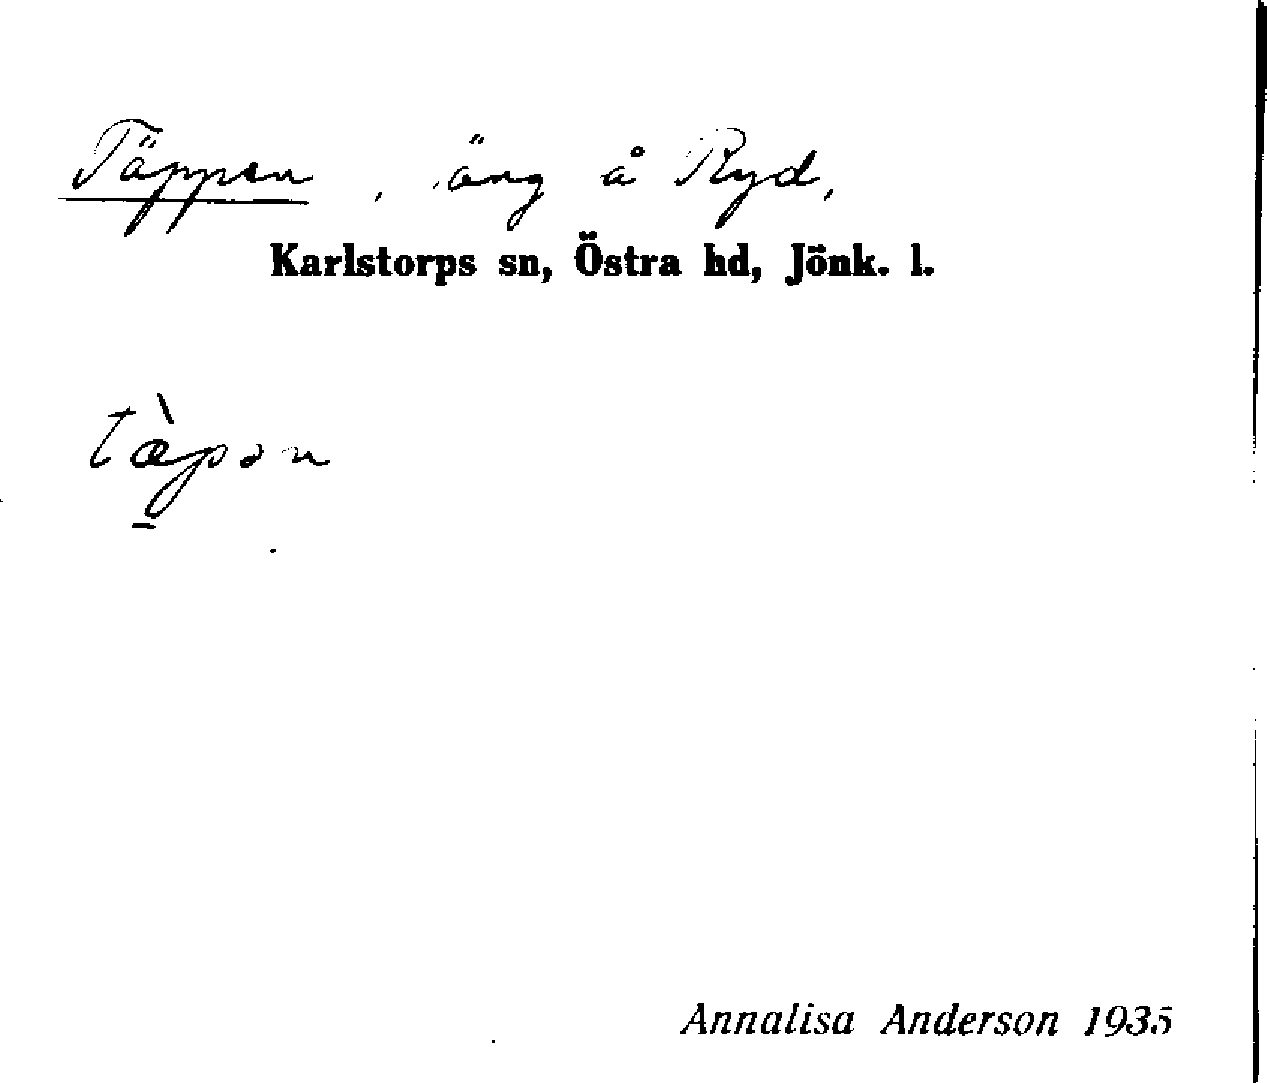 Täppen, äng å Ryd,
Karlstorps sn, Östra hd, Jönk. l.
tæ̀p̱ən
Annalisa Anderson 1935